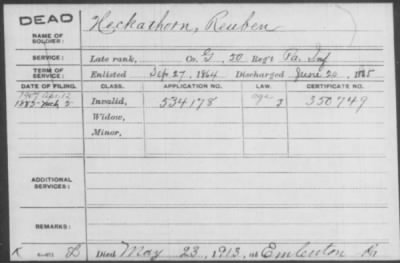 DEAD
NAME OF SOLDIER: Heckathorn, Reuben
SERVICE: Late rank, Co. G, 50 Reg't Pa. Inf
TERM OF SERVICE: Enlisted Sep 27, 1864 Discharged June 20, 1865
DATE OF FILING. CLASS. APPLICATION NO. LAW. CERTIFICATE NO.
1907 Apr 12 age
1885 2 Invalid, 534178 350749
Widow,
Minor,
ADDITIONAL SERVICES:
REMARKS:
K Died May 23, 1913, at Emlenton Pa